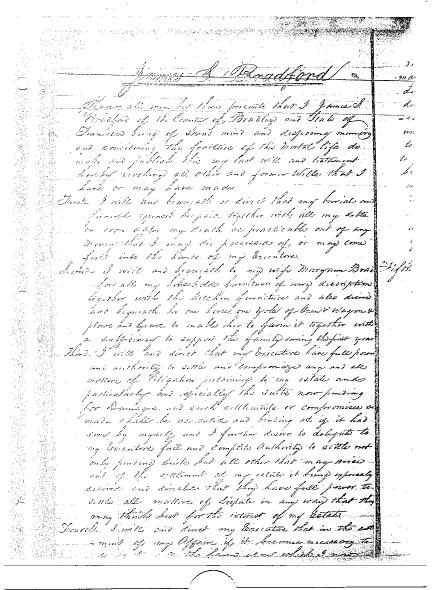 James I Bradford
Know all men by these presents that I James I
Bradford of the County of Bradley and State of
Tennessee being of sound mind and disposing memory
and considering the frailties of this mortal life do
make and publish this my last will and testament
hereby revoking all other and former Wills that I
have or may have made
First I will and bequeath or direct that my burial and
funeral expenses be paid together with all my debts
as soon after my death as practicable out of any
money that I may die possessed of, or may come
first into the hands of my Executors
I will and bequeath to my wife Maryann Brad
ford all my household furniture of every description
together with the Kitchen furniture and also desire
and bequeath her one horse, one yoke of Oxen & Wagon &
plows and Gears to enable her to farm it together with
a sufficiency to support the family during the first year
Third I will and direct that my Executors have full power
and authority to settle and compromise any and all
matters of litigation pertaining to my estate and
particularly and specially the Suits now pending
for Damages, and such settlements or compromises so
made shall be as valid and binding as if it had
done by myself and I further desire to delegate to
my Executors full and complete Authority to settle not
only pending suits but all other that may arise
out of the settlement of my estate it being expressly
desired and wished that they have full power to
settle all matters of dispute in any way that they
may think best for the interest of my Estate
Fourth I will and direct my Executors that in the
of my Affairs if it becomes necessary to
which I now